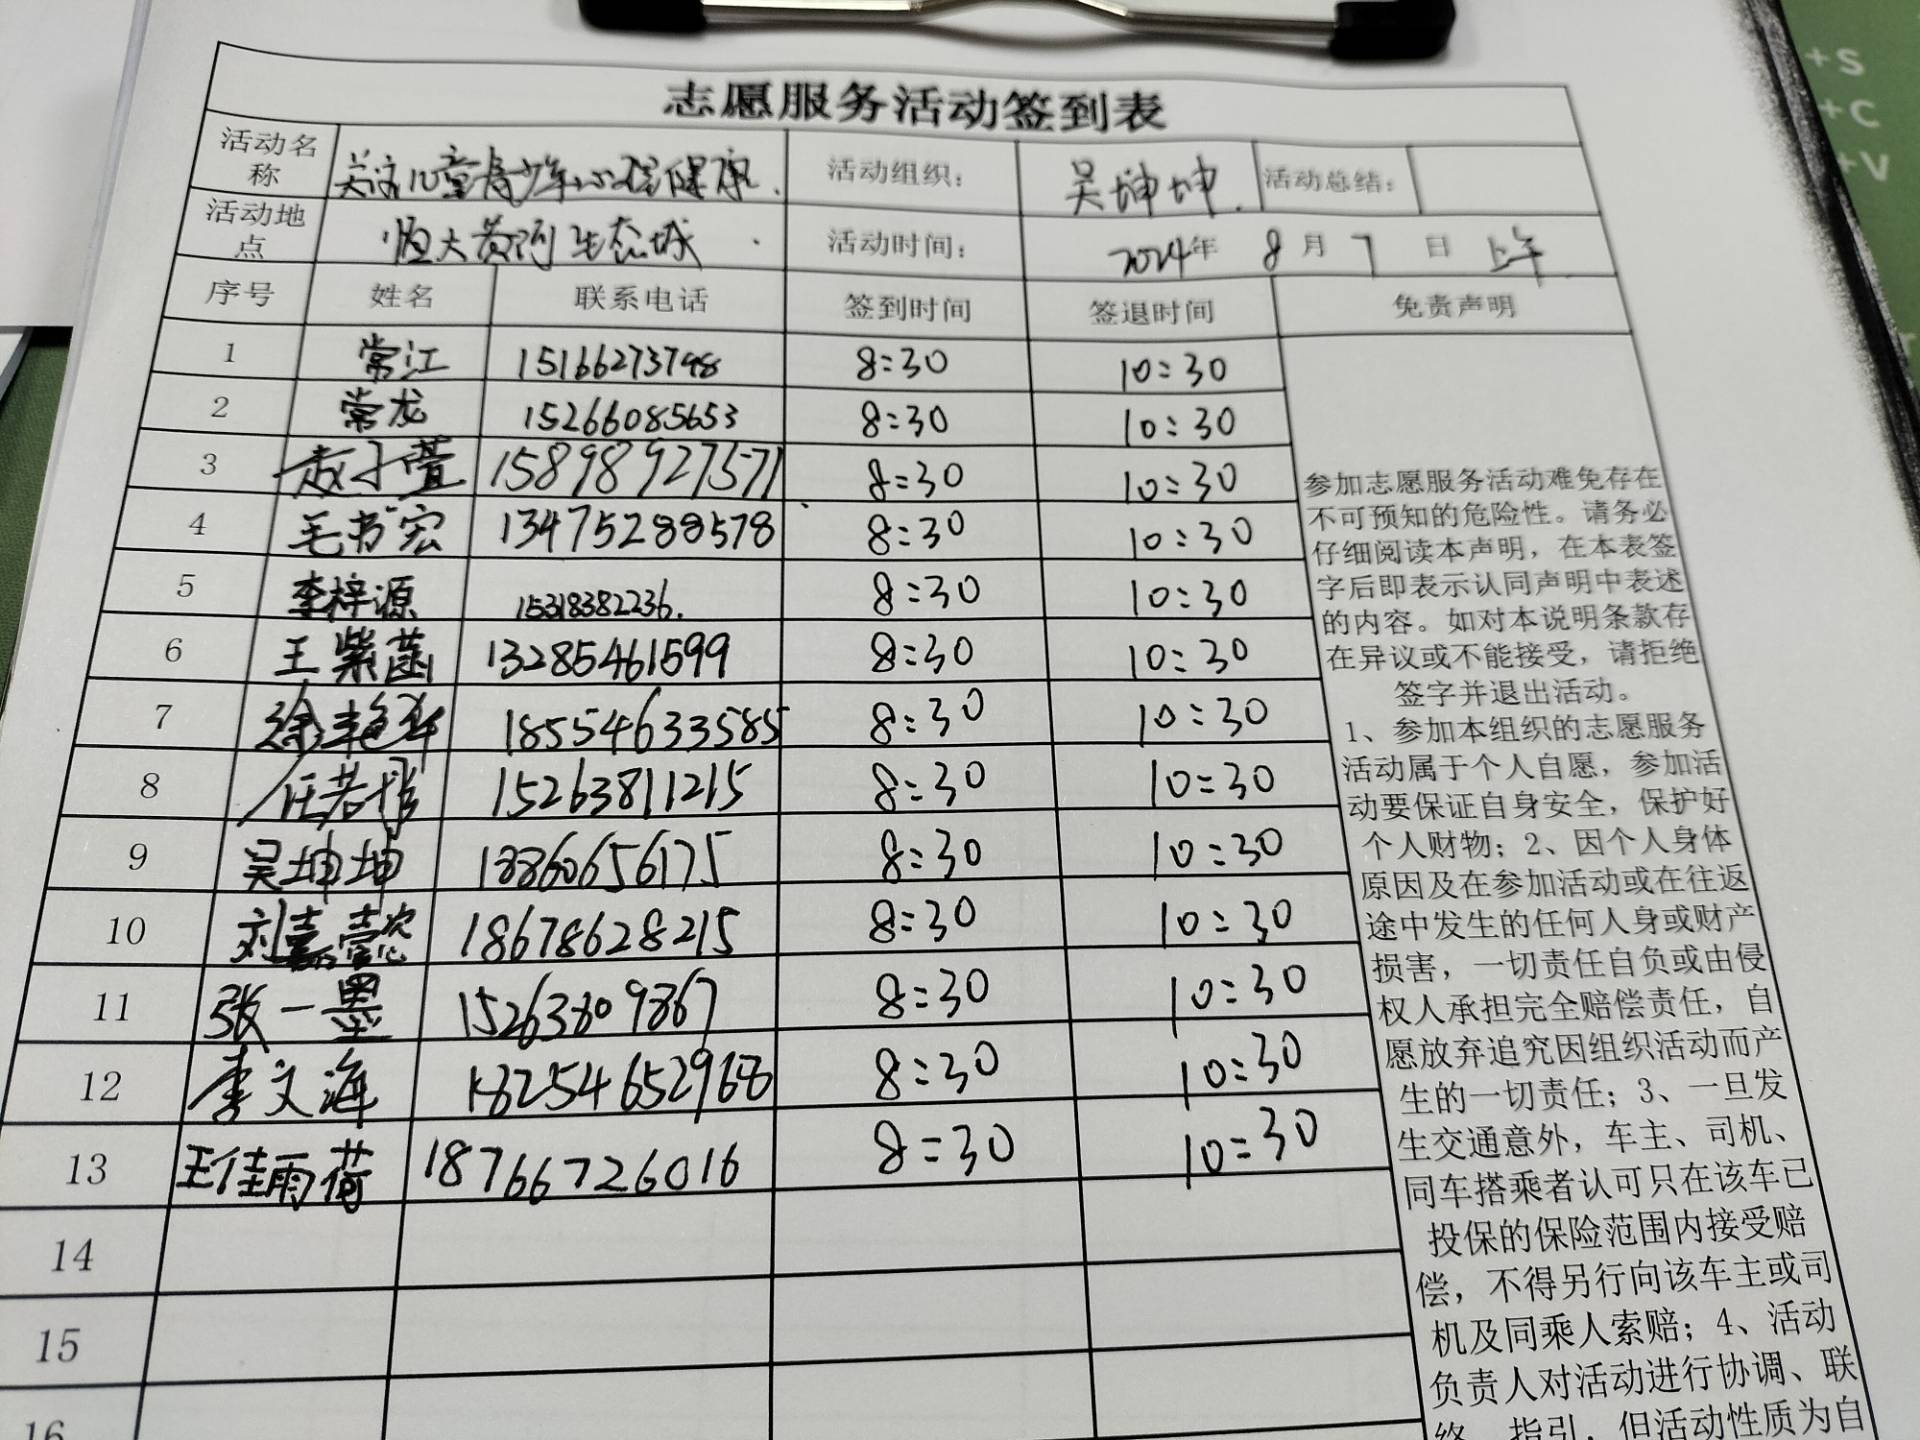 志愿服务活动签到表
活动名称 关注儿童青少年心理健康. 活动组织: 吴坤坤. 活动总结:
活动地点 恒大黄河生态城. 活动时间: 2024年 8月 7日 上午
序号 姓名 联系电话 签到时间 签退时间 免责声明
1 常江 15166273748 8:30 10:30
2 常龙 15266085653 8:30 10:30
3 赵子萱 15898927571 8:30 10:30
4 毛书宏 13475288578 8:30 10:30
5 李梓源 15318382236. 8:30 10:30
6 王紫菡 13285461599 8:30 10:30
7 徐艳华 18554633585 8:30 10:30
8 任若彤 15263811215 8:30 10:30
9 吴坤坤 18860656175 8:30 10:30
10 刘嘉懿 18678628215 8:30 10:30
11 张一墨 15263809867 8:30 10:30
12 李文海 18254652968 8:30 10:30
13 王佳雨荷 18766726016 8:30 10:30
14
15
16
参加志愿服务活动难免存在
不可预知的危险性。请务必
仔细阅读本声明，在本表签
字后即表示认同声明中表述
的内容。如对本说明条款存
在异议或不能接受，请拒绝
签字并退出活动。
1、参加本组织的志愿服务
活动属于个人自愿，参加活
动要保证自身安全，保护好
个人财物；2、因个人身体
原因及在参加活动或在往返
途中发生的任何人身或财产
损害，一切责任自负或由侵
权人承担完全赔偿责任，自
愿放弃追究因组织活动而产
生的一切责任；3、一旦发
生交通意外，车主、司机、
同车搭乘者认可只在该车已
投保的保险范围内接受赔
偿，不得另行向该车主或司
机及同乘人索赔；4、活动
负责人对活动进行协调、联
络、指引，但活动性质为自
+S
+C
+V